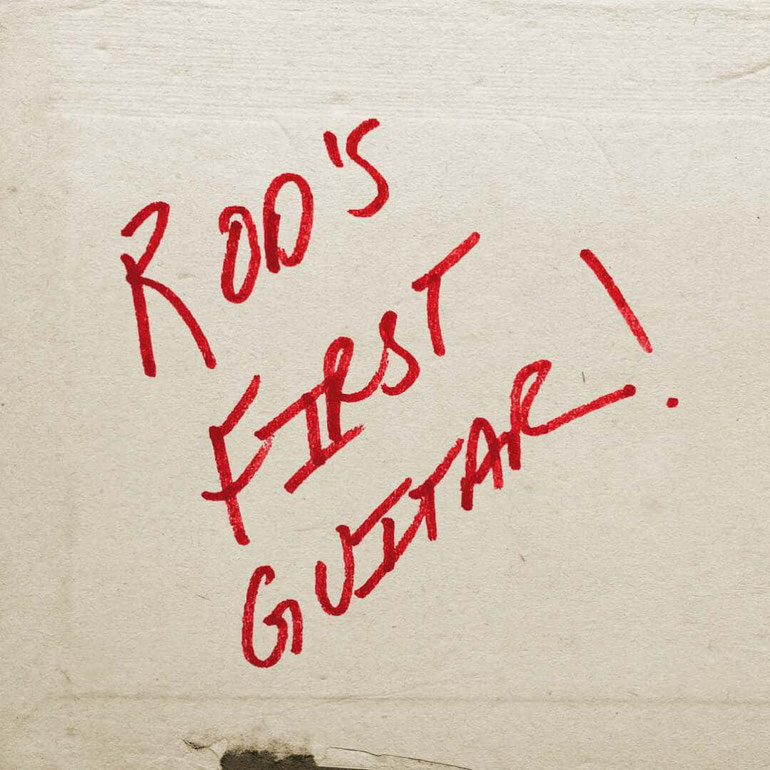 ROD'S
FIRST
GUITAR!